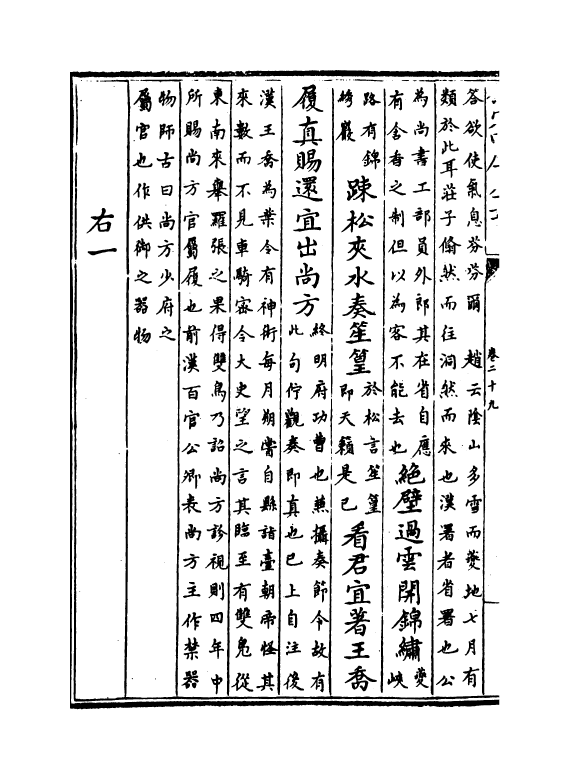 卷二十九
答欲使氣息芬芬爾　趙云陰山多雪而夔地七月有
類於此耳莊子翛然而往洞然而來也漢署者省署也公
為尚書工部員外郎其在省自應
有含香之制但以為客不能去也
絶壁過雲開錦繡
夔
峽
路有錦
綺巖
疎松夾水奏笙篁
於松言笙篁
即天籟是已
看君宜著王喬
履真賜還宜出尚方
終明府功曹也兼攝奏節令故有
此句佇觀奏即真也已上自注後
漢王喬為葉令有神術每月朔嘗自縣詣臺朝帝怪其
來數而不見車騎密令大史望之言其臨至有雙鳧從
東南來舉羅張之果得雙舄乃詔尚方診視則四年中
所賜尚方官屬履也前漢百官公卿表尚方主作禁器
物師古曰尚方少府之
屬官也作供御之器物
右一